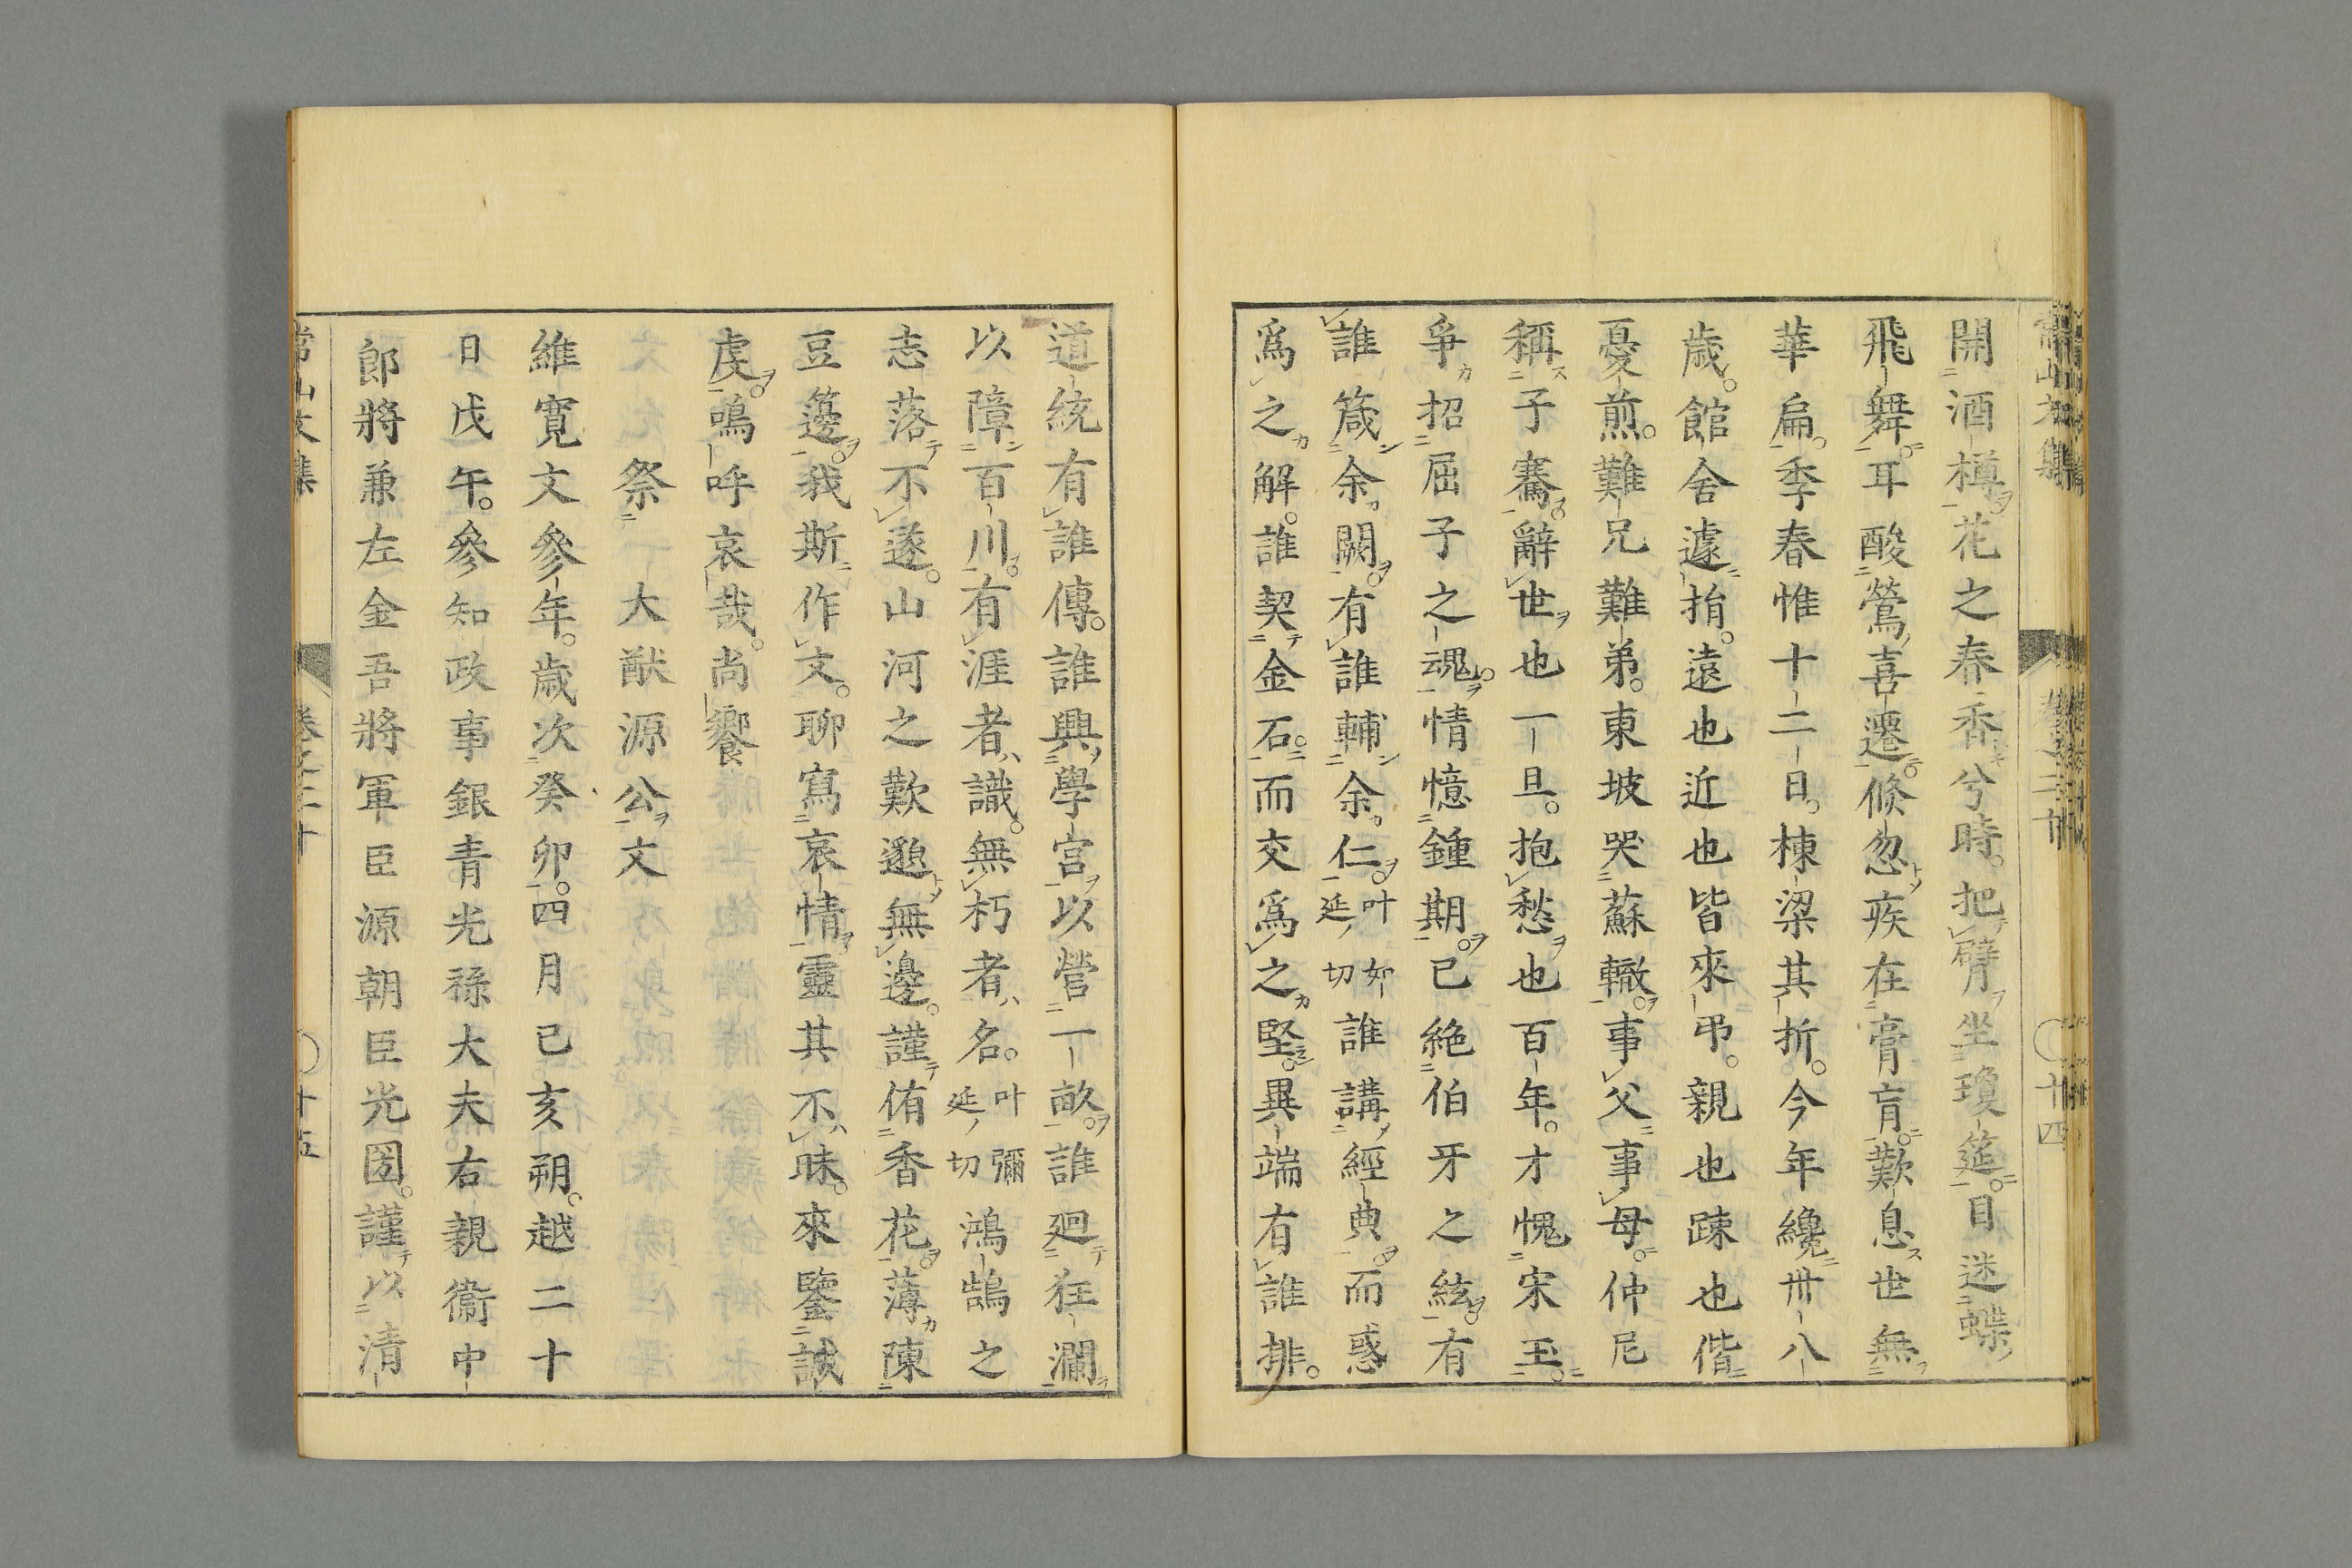 開酒樽花之春香兮時。把臂坐瓊筵。目迷蝶
飛舞。耳酸鶯喜遷。倐忽疾在膏肓。歎息世無
華扁。季春惟十二日。棟梁其折。今年纔卅八
歲。館舍遽捐。遠也近也皆來弔。親也踈也偕
憂煎。難兄難弟。東坡哭蘇轍。事父事母。仲尼
稱子騫。辭世也一旦。抱愁也百年。才愧宋玉。
爭招屈子之魂。情憶鍾期。已絶伯牙之絃。有
誰箴余闕。有誰輔余仁。叶如延切誰講經典而惑
爲之解。誰契金石。而交爲之堅。異端有誰排。
道統有誰傳。誰興學宮以營一畝。誰廻狂瀾
以障百川。有涯者識。無朽者名。叶彌延切鴻鵠之
志落不遂。山河之歎邈無邊。謹侑香花。薄陳
豆籩。我斯作文。聊寫哀情靈其不昧。來鑒誠
虔。嗚呼哀哉。尚饗
祭大猷源公文
維寬文參年。歲次癸卯。四月已亥朔。越二十
日戊午。參知政事銀青光祿大夫右親衞中
郎將兼左金吾將軍臣源朝臣光圀。謹以清
常山文集 卷之二十 〇十五